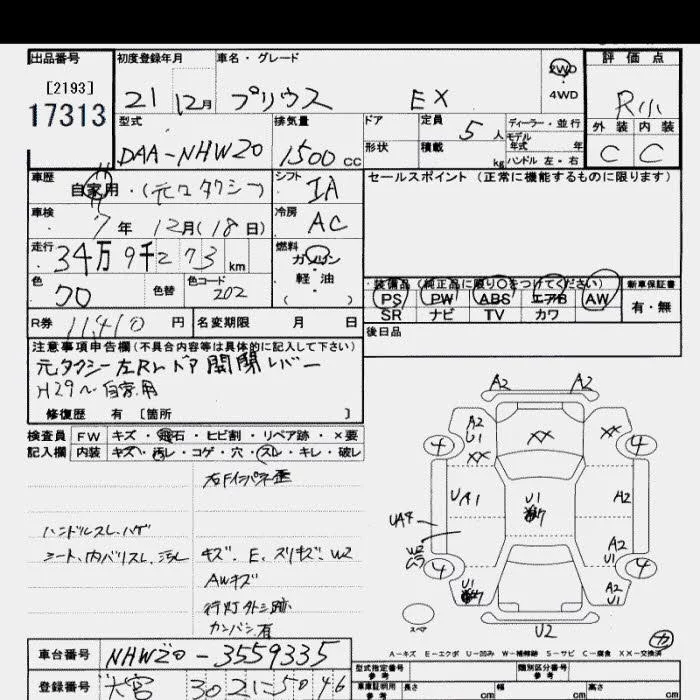 出品番号 初度登録年月 車名・グレード 2WD 評価点
[2193]
17313 21 12月 プリウス EX 4WD R小
型式 排気量 ドア 定員 5人 ディーラー・並行 外装 内装
DAA-NHW20 1500cc 形状 積載 kg モデル年式 年 ハンドル 左・右 C C
車歴 自家用・(元タクシー) シフト IA セールスポイント (正常に機能するものに限ります)
車検 7年 12月(18日) 冷房 AC
走行 34万9千273km 燃料 ガソリン
軽油
( )
色 70 色替 色コード 202 装備品(純正品に限り○をつけてください) 新車保証書
PS PW ABS エアB AW 有・無
SR ナビ TV カワ
R券 11,410円 名変期限 月 日 後日品
注意事項申告欄(不具合内容等は具体的に記入して下さい)
元タクシー 左Rrドア 開閉レバー
H29~自家用
修復歴 有 [箇所 ]
検査員 FW キズ・飛石・ヒビ割・リペア跡・×要
記入欄 内装 キズ・汚レ・コゲ・穴・スレ・キレ・破レ
右Fインパネ歪
ハンドルスレ、ハゲ
シート、内バリスレ、汚レ キズ、E、スリキズ、W2
AWキズ
行灯外シ跡
カンバン有
A2 A2
A2
U1 XX XX
4 XX 4
UA1 U1 A2
UA4
W2 A2
U1
4 4
U1 A2
U1
スペア U2
A-キズ E-エクボ U-凹み W-補修跡 S-サビ C-腐食 XX-交換済
車台番号 NHW20-3559335 型式指定番号 参考 類別区分番号 参考
登録番号 大宮 302 15046 車庫証明用 参考 長さ cm 幅 cm 高さ cm